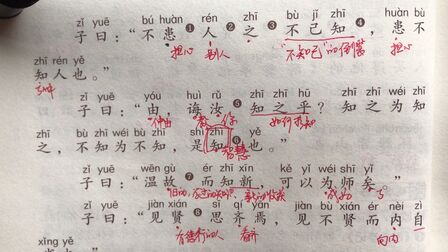 zǐ yuē bú huàn rén zhī bù jǐ zhī huàn bù
子曰：“不患❶人❷之❸不己知❹，患不
担心 别人 “不知己”的倒装 担心
zhī rén yě
知人也。”
zǐ yuē yóu huì rǔ zhī zhī hū zhī zhī wéi zhī
子曰：“由，诲汝❺知之乎？知之为知
仲由 教 你 如何求知
zhī bù zhī wéi bù zhī shì zhì yě
之，不知为不知，是知❻也。”
智慧
zǐ yuē wēn gù ér zhī xīn kě yǐ wéi shī yǐ
子曰：“温故❼而知新，可以为师矣。”
成为
zǐ yuē jiàn xián sī qí yān jiàn bù xián ér nèi zì
子曰：“见贤❽思齐焉，见不贤而内自
看齐 向内
xǐng yě